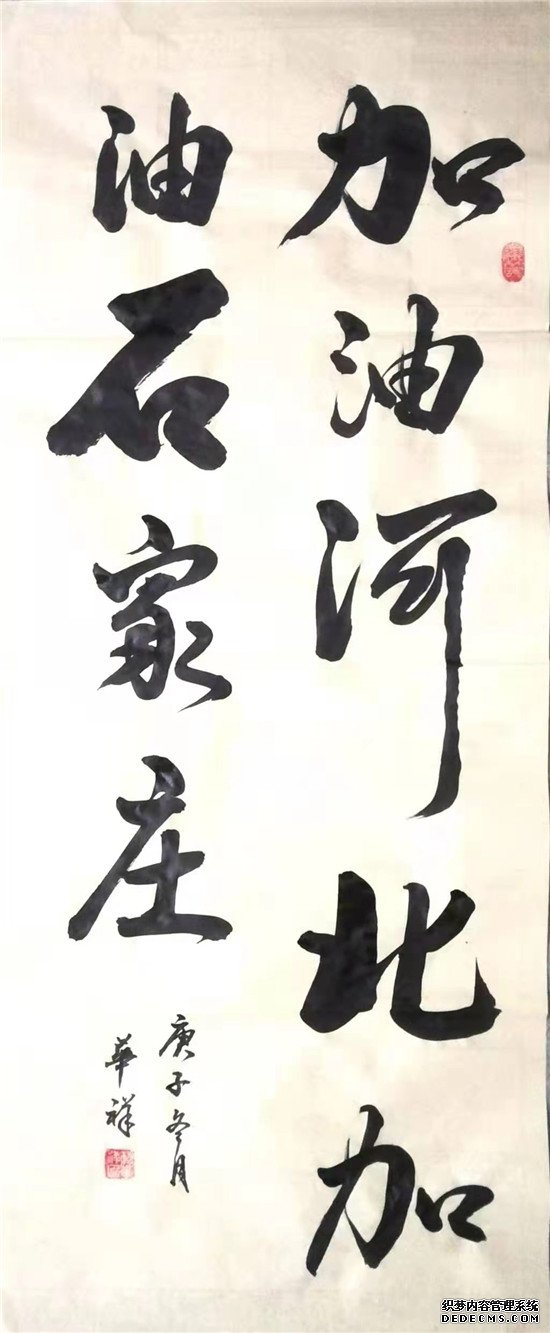 加油河北加
油石家庄
庚子冬月
華祥
织梦内容管理系统
DEDECMS.COM